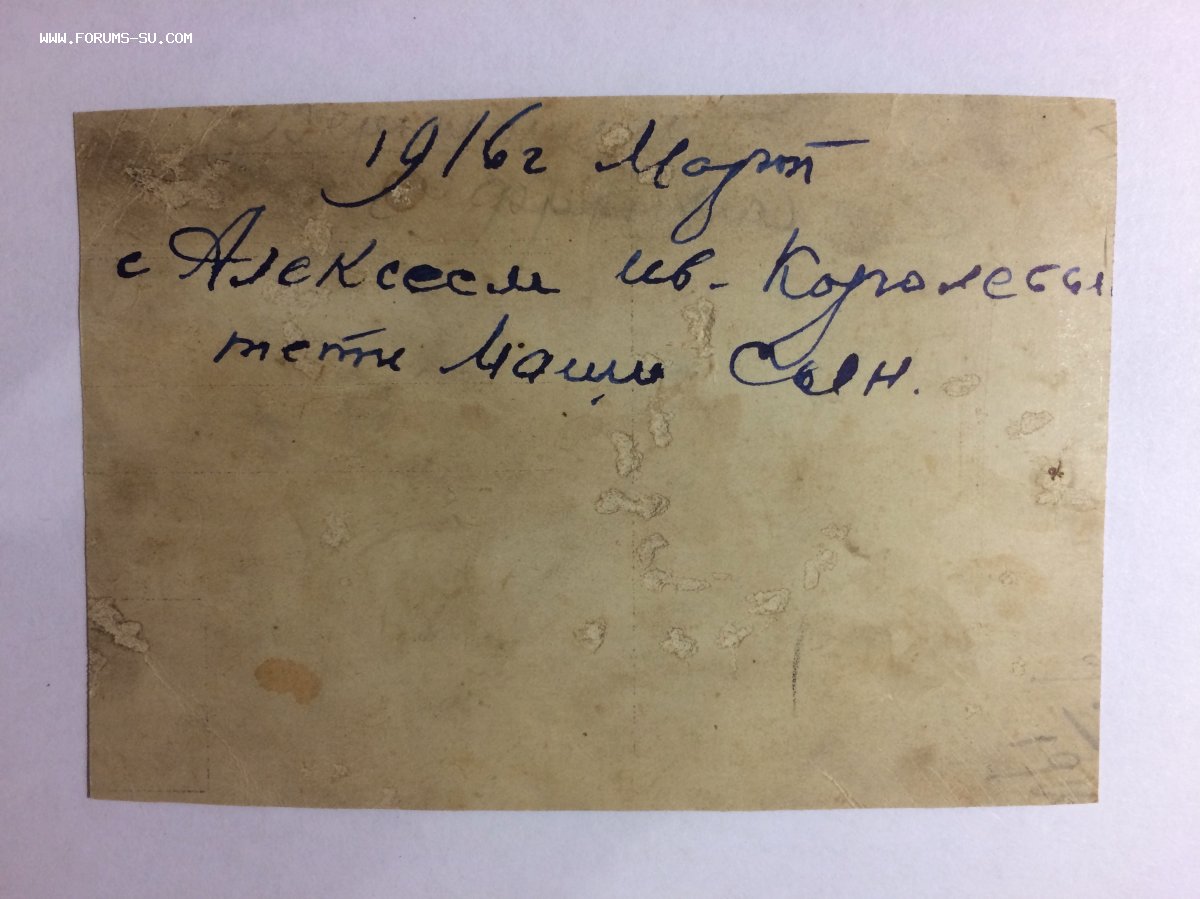 WWW.FORUMS-SU.COM
1916г Март
с Алексеем ив. Королевым
тети Маши Сын.